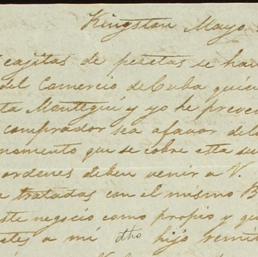 Kingston Mayo
cajitas de pesetas se ha
del Comercio de Cuba quien
ta Manttguí y yo he preve
comprador sea afavor del
momento que se cobre esta su
ordenes deben venir a V.
a tratadas con el mismo B
ste negocio como propio y qu
tes a mi dho hijo remi